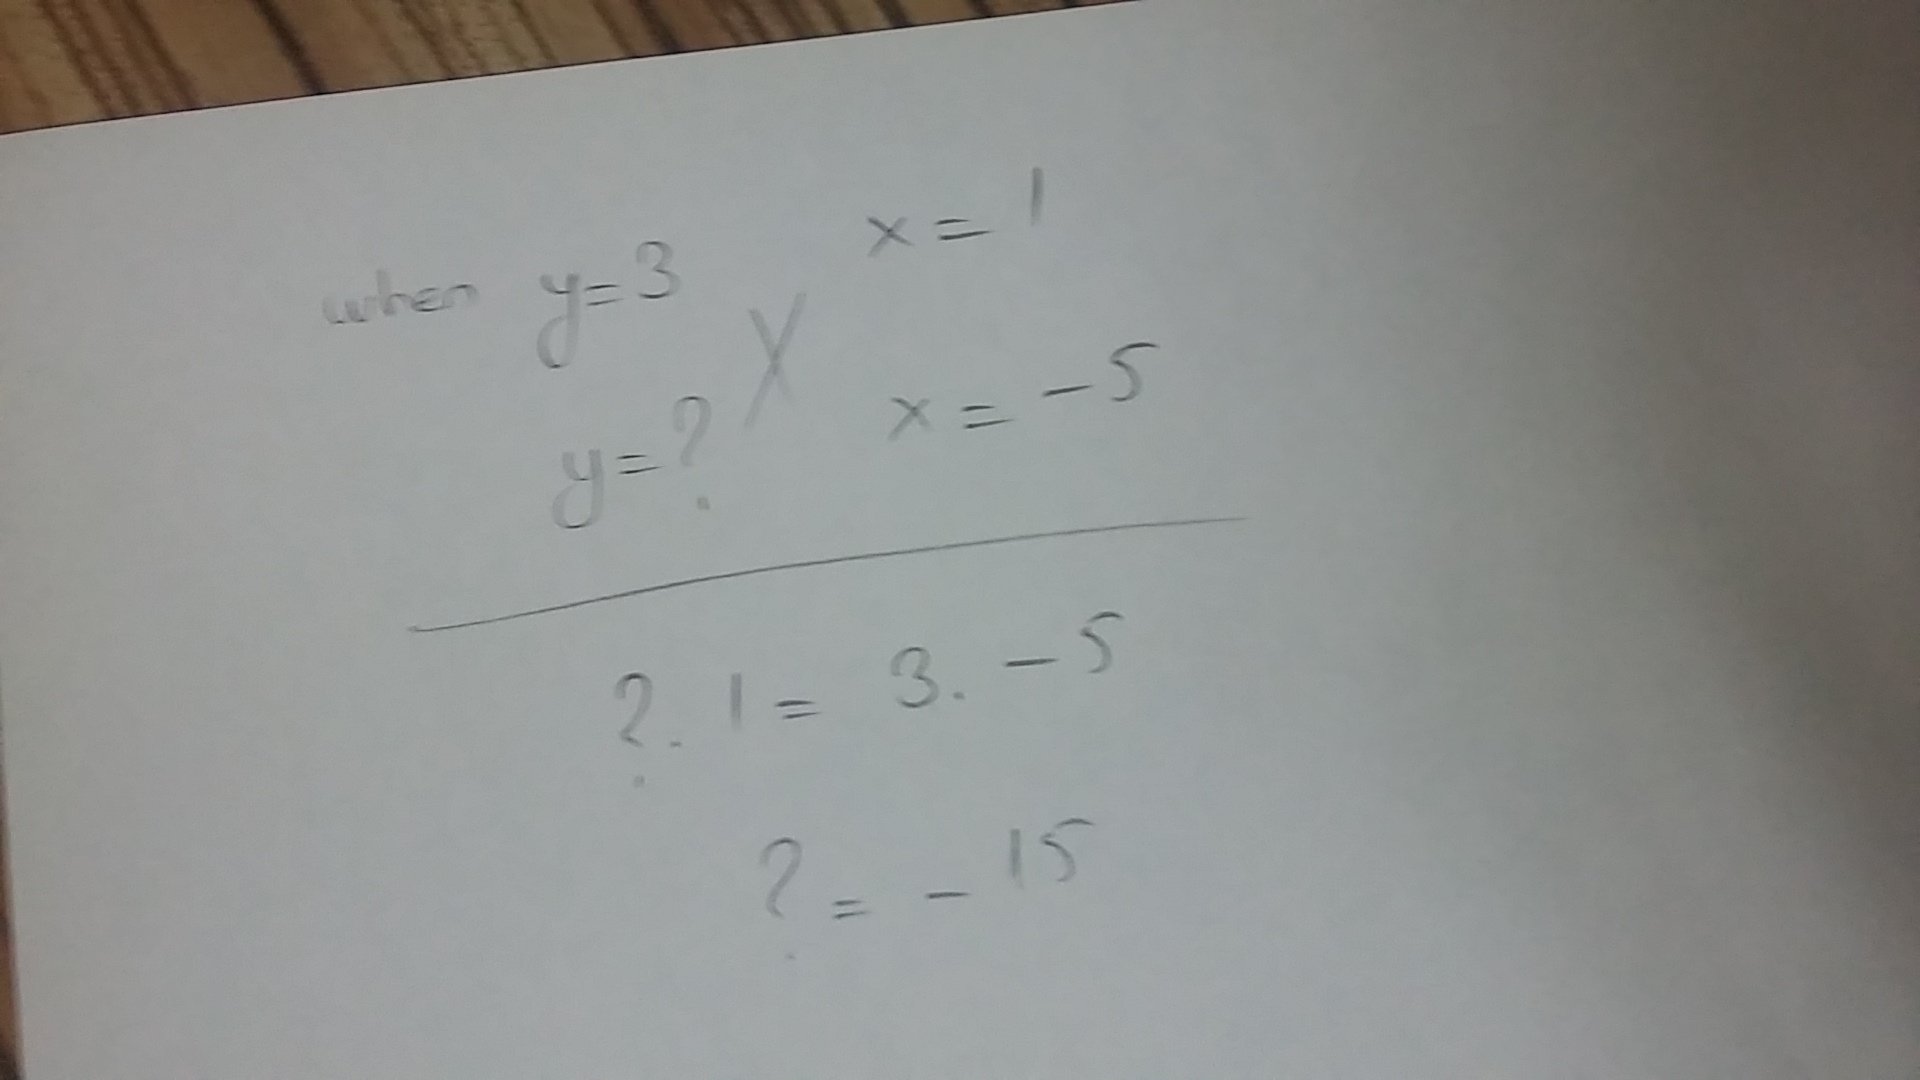 when y=3 x=1
y=? x=-5
?.1=3.-5
?=-15